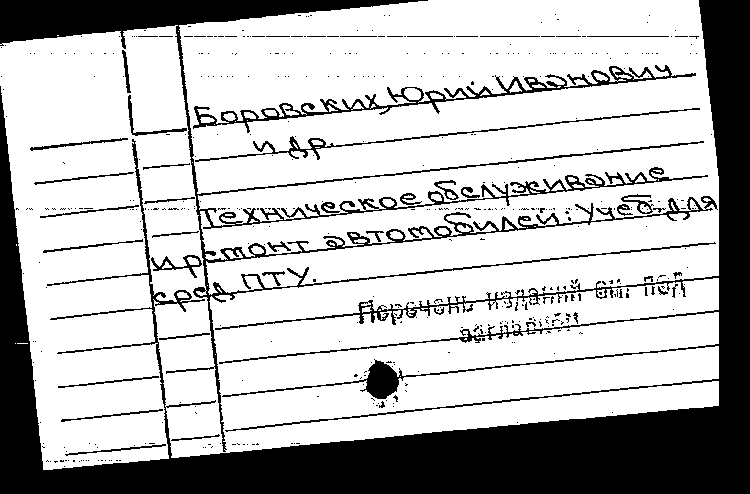 Боровских, Юрий Иванович
и др.
Техническое обслуживание
и ремонт автомобилей: Учеб. для
сред. ПТУ.
Перечень изданий см. под
заглавием